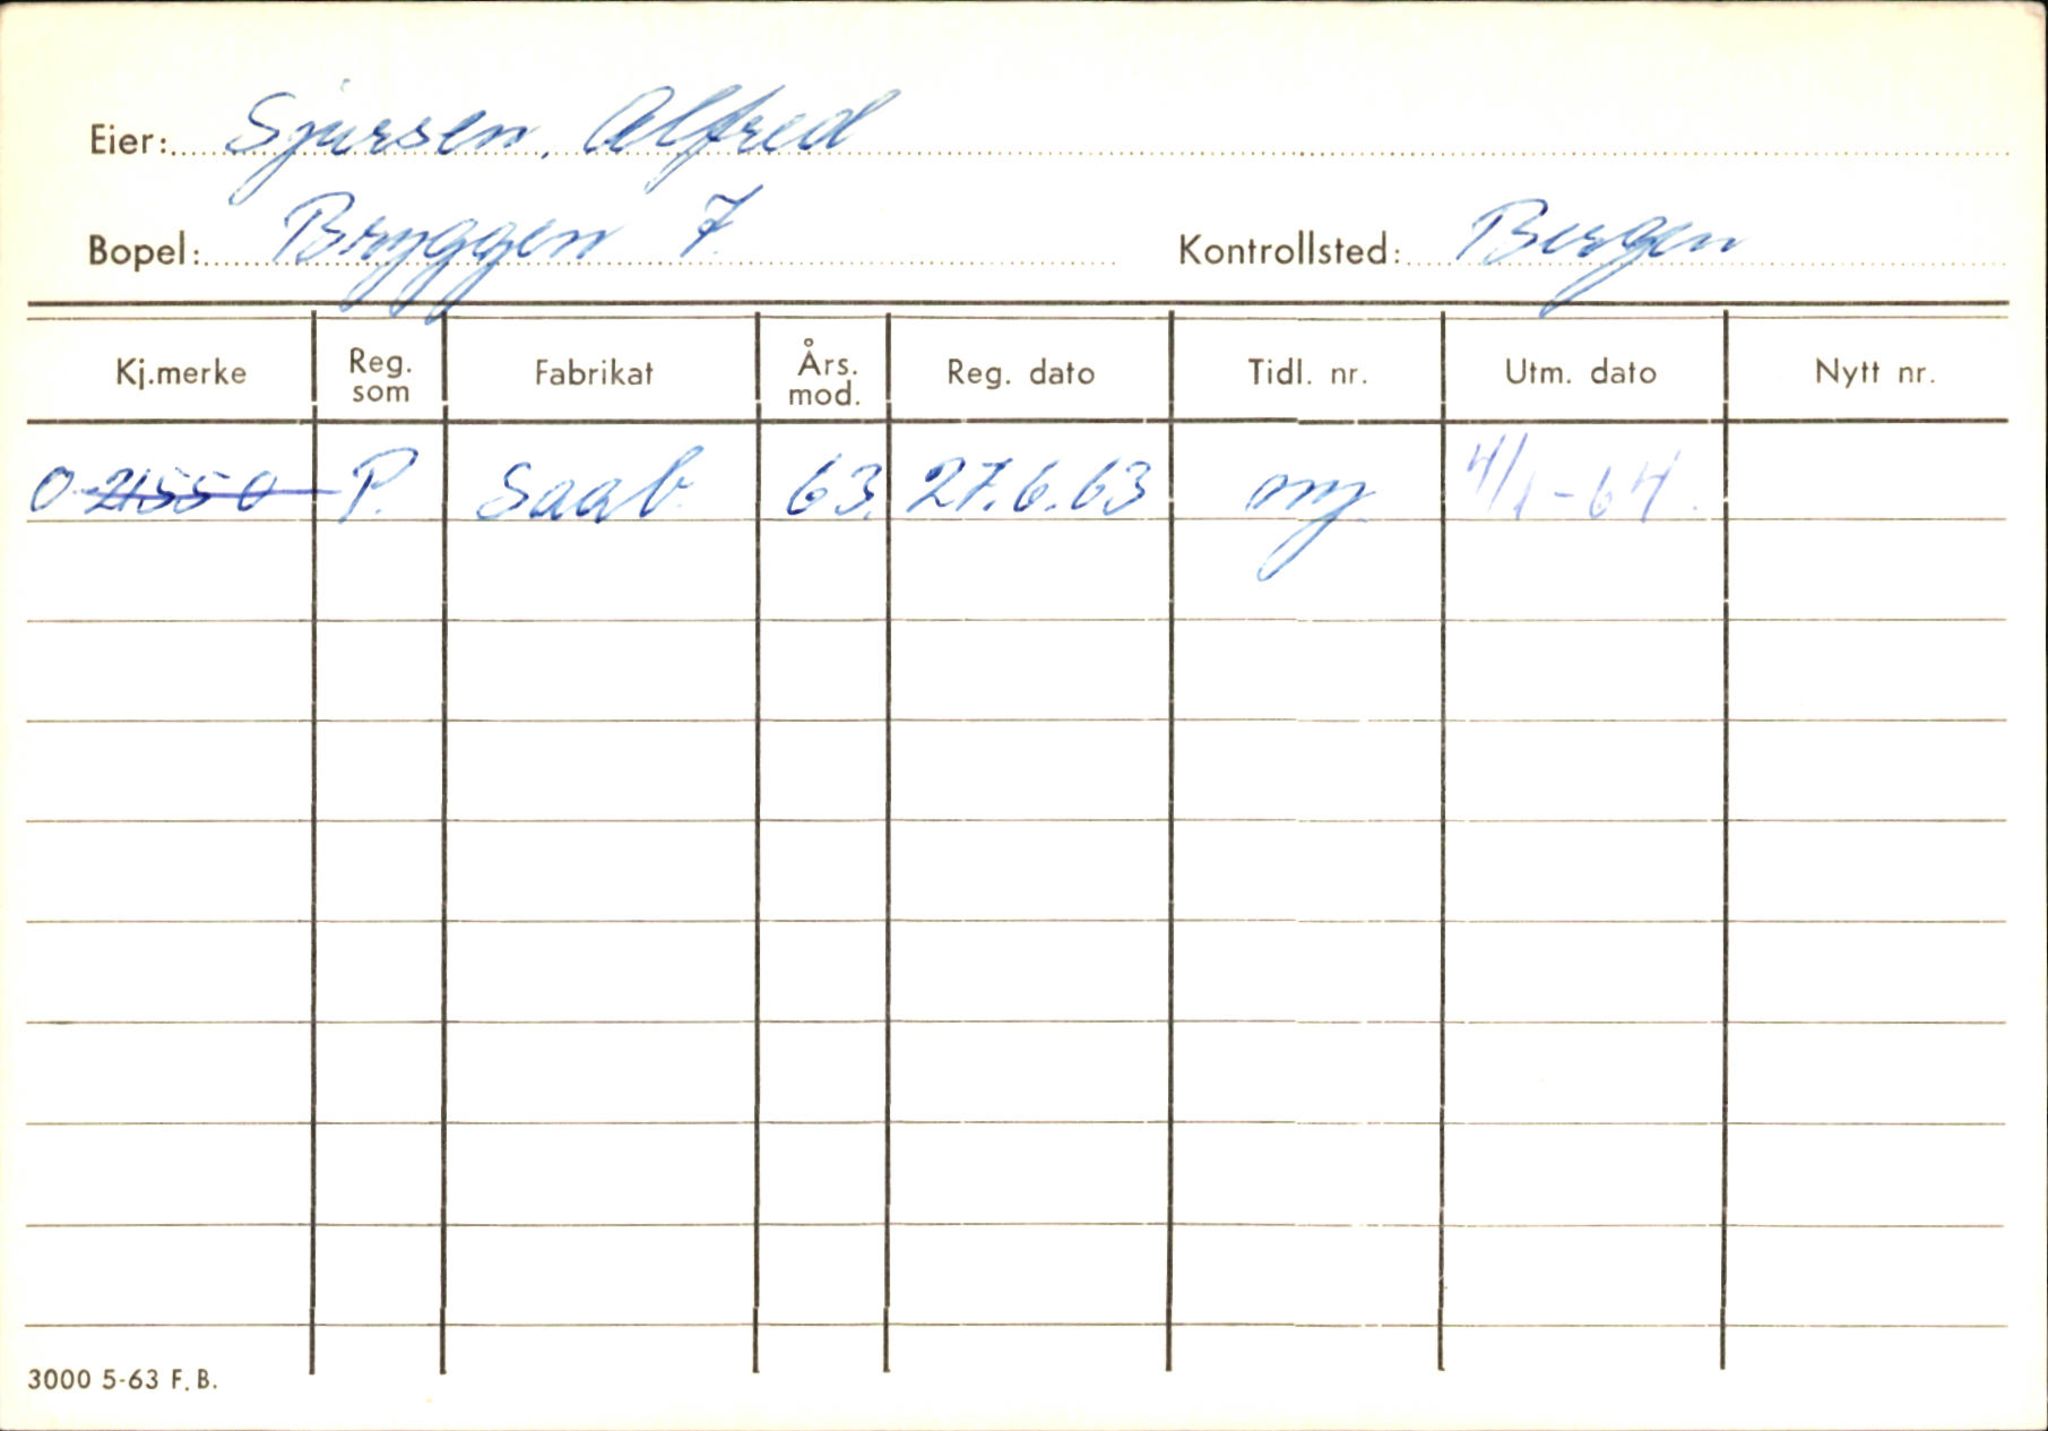 Eier: Sjursen, Alfred
Bopel: Bryggen 7. Kontrollsted: Bergen
Kj.merke Reg. som Fabrikat Års. mod. Reg. dato Tidl. nr. Utm. dato Nytt nr.
O-21550 P. Saab 63. 27.6.63 ny 4/1-64.
3000 5-63 F.B.